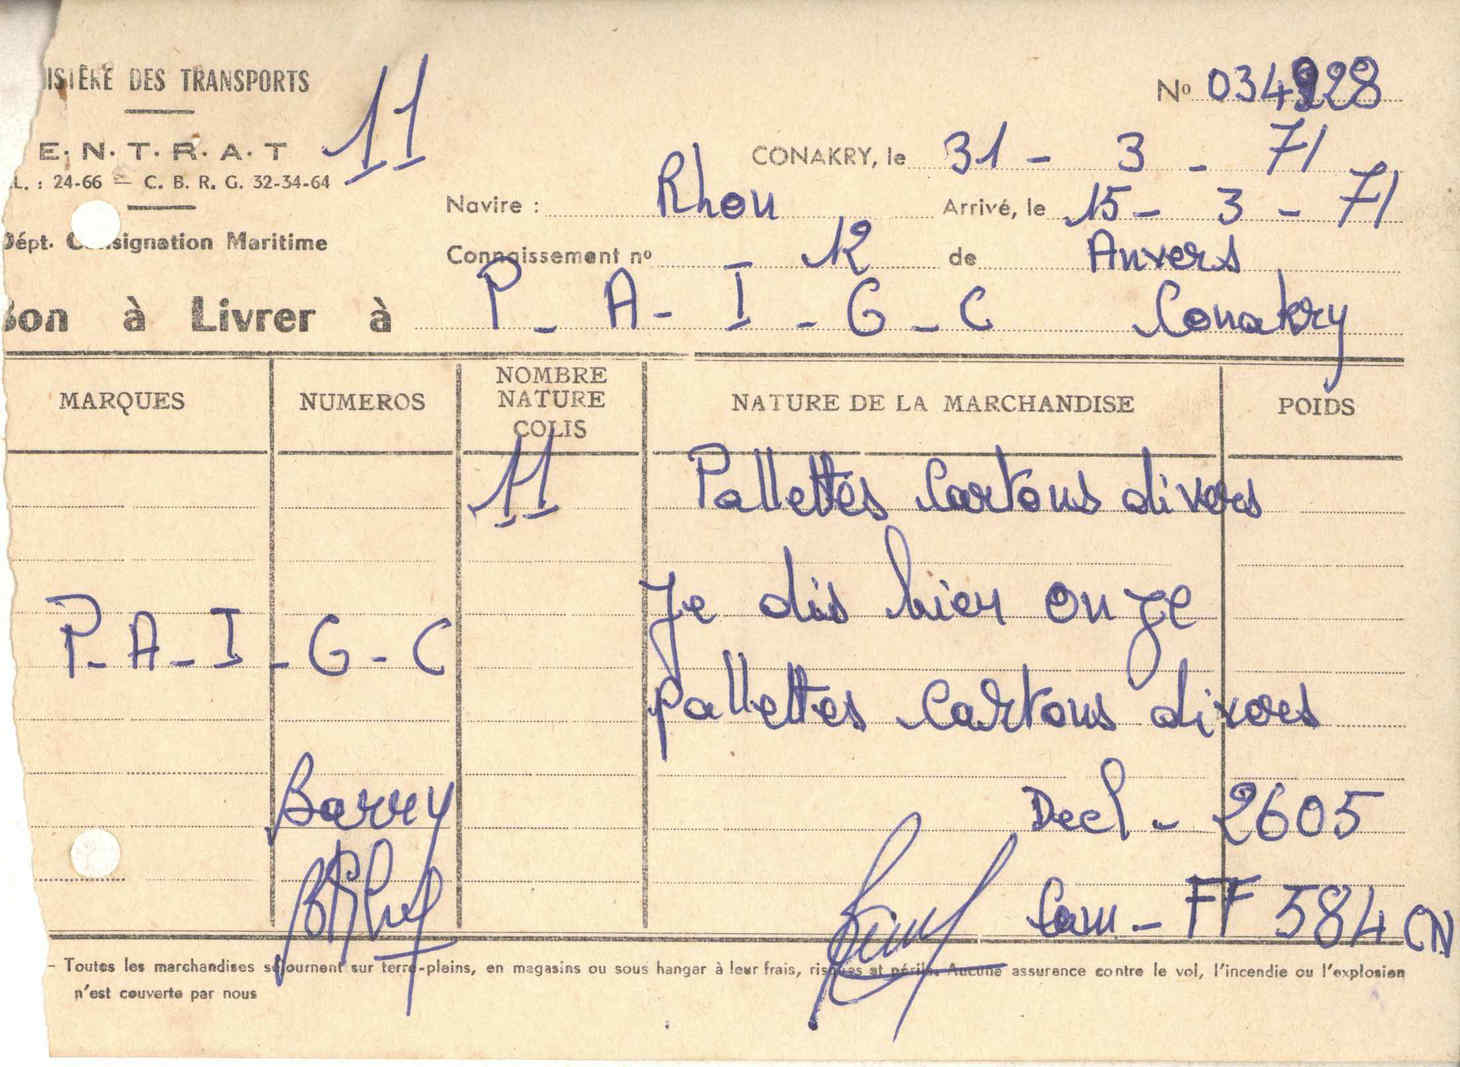 ISTÈRE DES TRANSPORTS
E. N. T. R. A. T
11
L. : 24-66 — C. B. R. G. 32-34-64
Dépt. Consignation Maritime
Nº 034928
CONAKRY, le 31 - 3 - 71
Navire : Rhon Arrivé, le 15 - 3 - 71
Connaissement nº 12 de Anvers
Bon à Livrer à P - A - I - G - C Conakry
MARQUES NUMEROS NOMBRE NATURE COLIS NATURE DE LA MARCHANDISE POIDS
11 Pallettes Cartons divers
Je dis bien onze
P - A - I - G - C
pallettes cartons divers
Barry
Decl - 2605
Cam - FF 584 CN
- Toutes les marchandises séjournent sur terre-pleins, en magasins ou sous hangar à leur frais, risques et périls. Aucune assurance contre le vol, l'incendie ou l'explosion
n'est couverte par nous